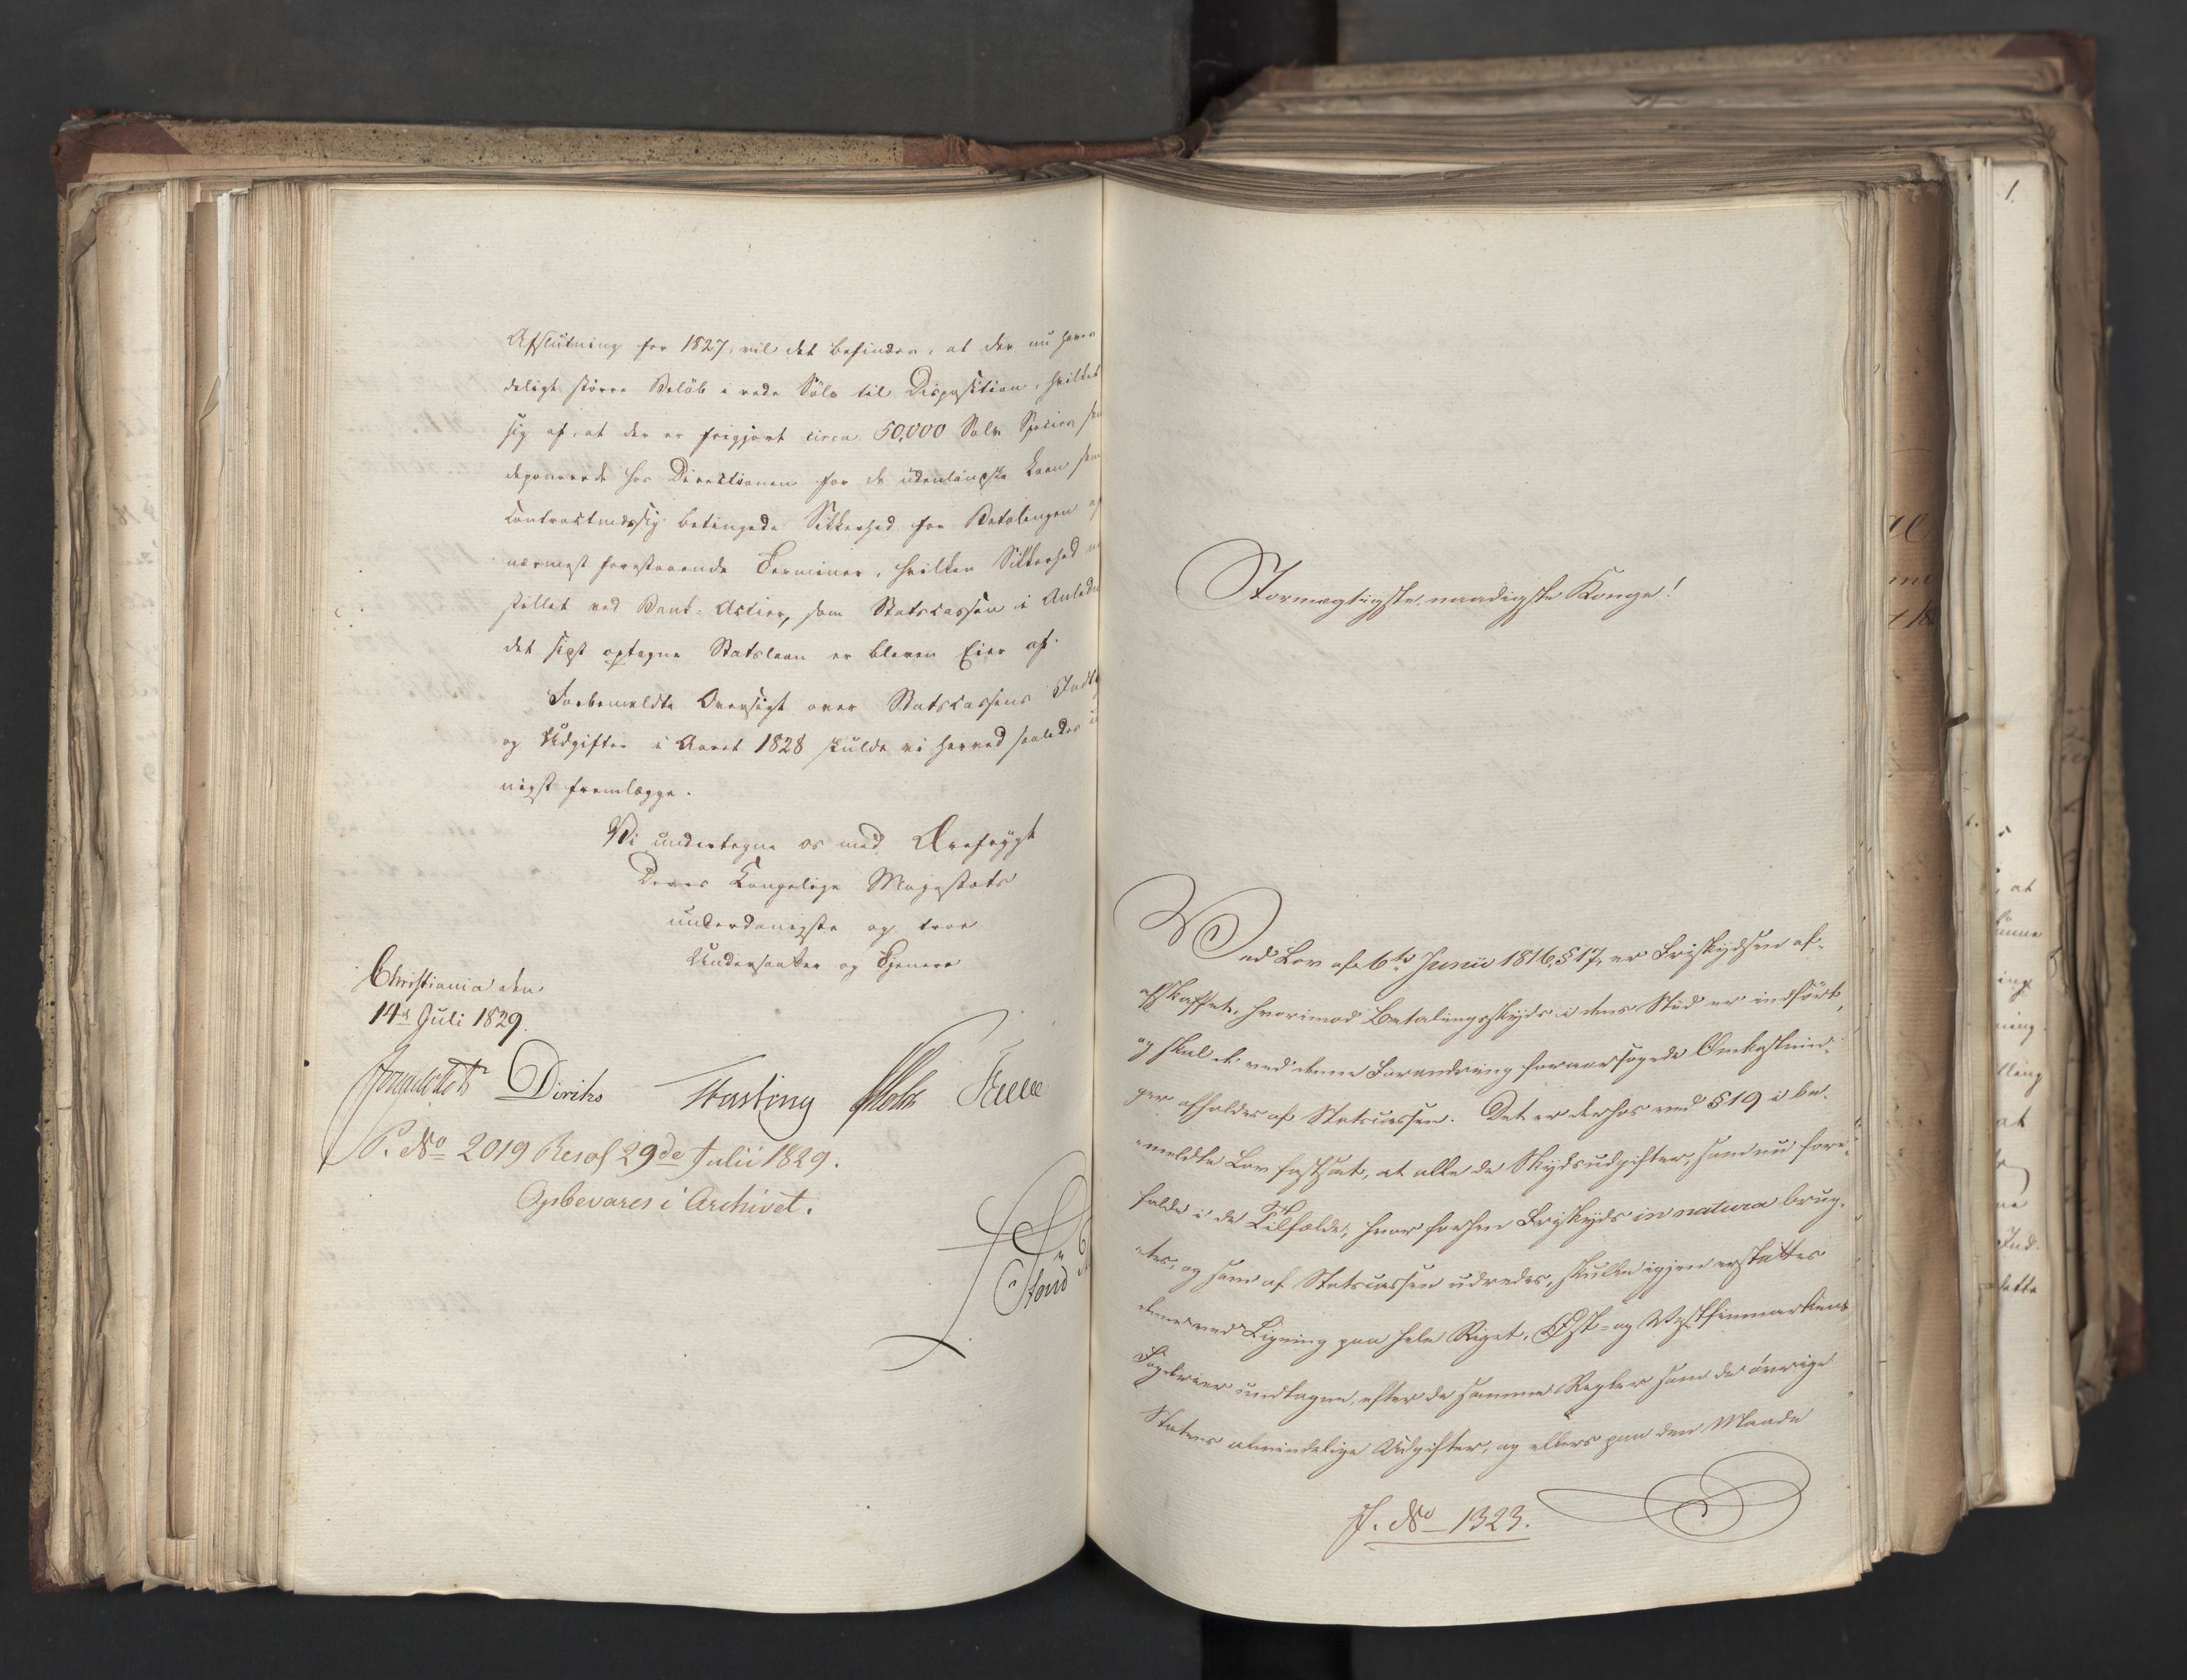 Afslutning for 1827, vil det befindes, at der nu haves
deligt större Beløb i rede Sölv til Disposition, hvilket
sig af, at der er frigjort circa 50,000 Sølv Species
deponerede hos Directionen for de udenlandske Laan som
contractmæssig betingede Sikkerhed for Betalingen af
nærmest forestaaende Terminer, hvilken Sikkerhed
stillet ved Bank-Actier, som Statscassen i Anledn
det sist optagne Statslaan er bleven Eier af.
Forbemeldte Oversigt over Statscassens Indt
og Udgifter i Aaret 1828 skulde vi herved saaledes
nigst fremlægge.
Vi undertegne os med Ærefrygt
Deres Kongelige Majestæts
underdanigste og troe
Undersaatter og Tjenere
Christiania den
14de Juli 1829.
Diriks Fasting Holst
P. No 2019 Resol 29de Julii 1829.
Opbevares i Archivet.
Stormægtigste, naadigste Konge!
Ved Lov af 6te Junii 1816, § 17, er Friskydsen af-
afskaffet, hvorimod Betalingsskyds i dens Sted er indført,
og skal de ved denne Forandring foraarsagede Omkostnin-
ger afholdes af Statscassen. Det er derhos ved § 19 i be-
meldte Lov fastsat, at alle de Skydsudgifter, som nu fore-
falde i de Tilfælde, hvor forhen Friskyds in natura brug-
tes, og som af Statscassen udredes, skulle igjen erstattes
denne ved Ligning paa hele Riget, Øst- og Vestfinmarkens
Fogderier undtagne, efter de samme Regler som de övrige
Statens almindelige Udgifter, og ellers paa den Maade
J. No 1323.
1.